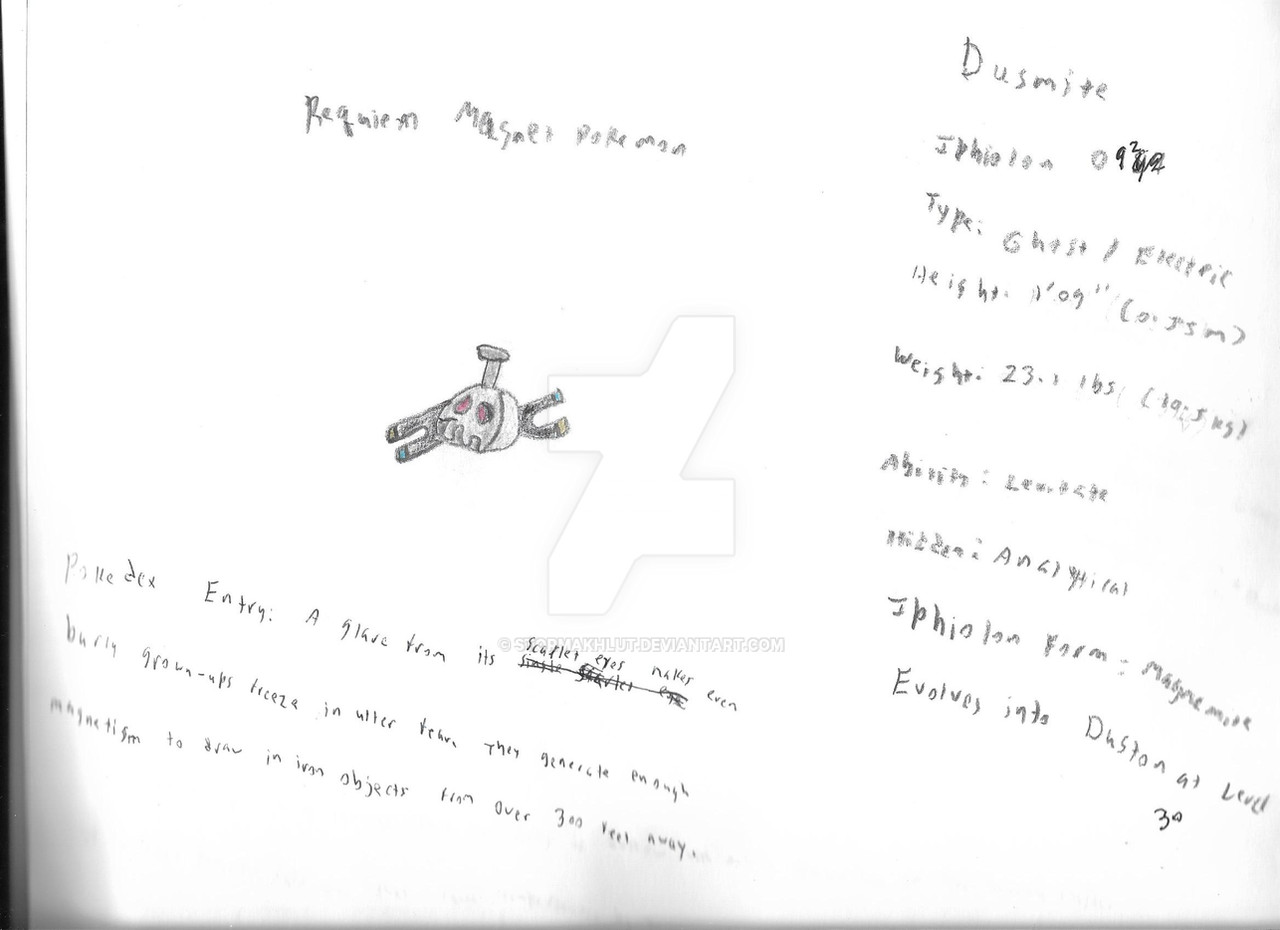 Requiem Magnet Pokemon
Dusmite
Iphiolon 092
Type: Ghost / Electric
Height: 1'09" (0.55m)
Weight: 23.1 lbs (
Ability: Levitate
Hidden: Analytical
Iphiolon Form: Magnemite
Evolves into Duston at Level
30
Pokedex Entry: A glare from its scarlet eyes makes even
burly grown-ups freeze in utter fear. They generate enough
magnetism to draw in iron objects from over 300 feet away.
DEVIANTART.COM